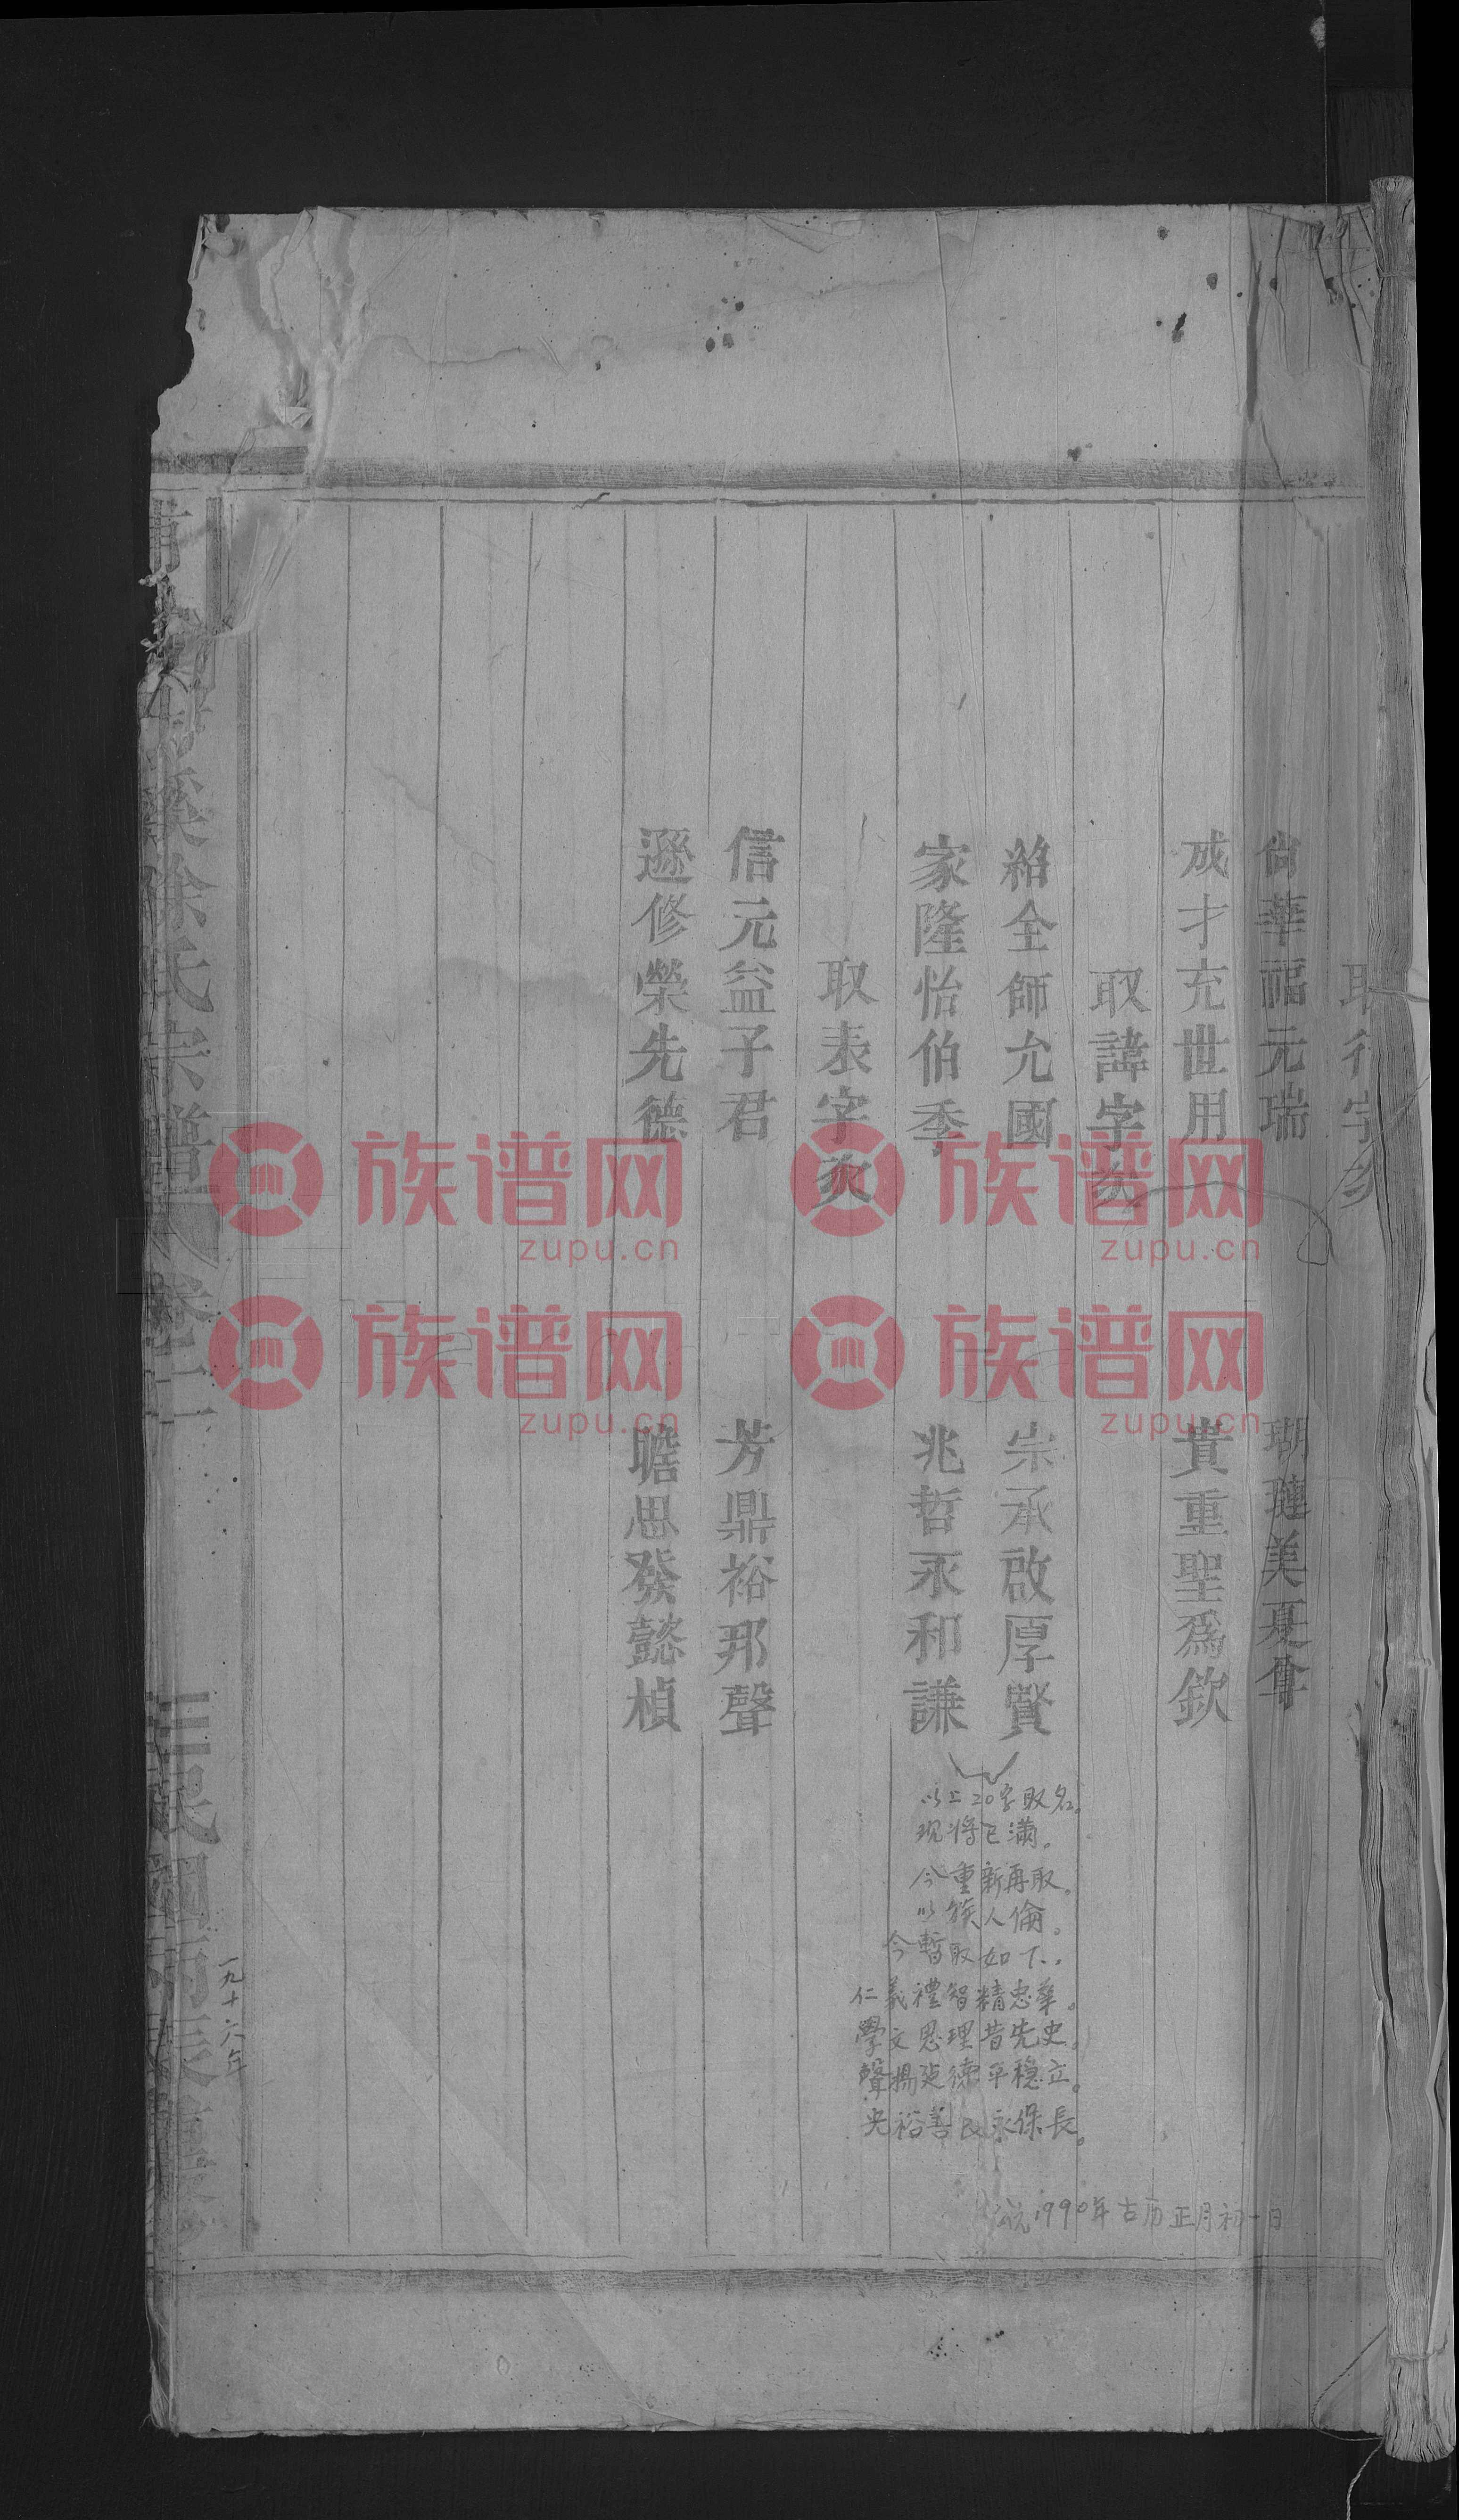 取行字
尚華福元瑞 瑚璉美夏
成才充世用 貴重聖為欽
取諱字
紹全師允國 宗承啟厚賢
家隆怡伯季 兆哲永和謙
取表字
信元益子君 芳鼎裕邦聲
遜修榮先德 瞻思發懿楨
以上20字取名。
現將已滿。
今重新再取。
以族人倫。
今暫取如下..
仁義禮智精忠華。
學文思理昔先史。
聲揚延德平穩立。
光裕善良永保長。
公元1990年古历正月初一日
溪徐氏宗譜 卷三
三民國
一九十六年
族谱网
zupu.cn
族谱网
zupu.cn
族谱网
zupu.cn
族谱网
zupu.cn